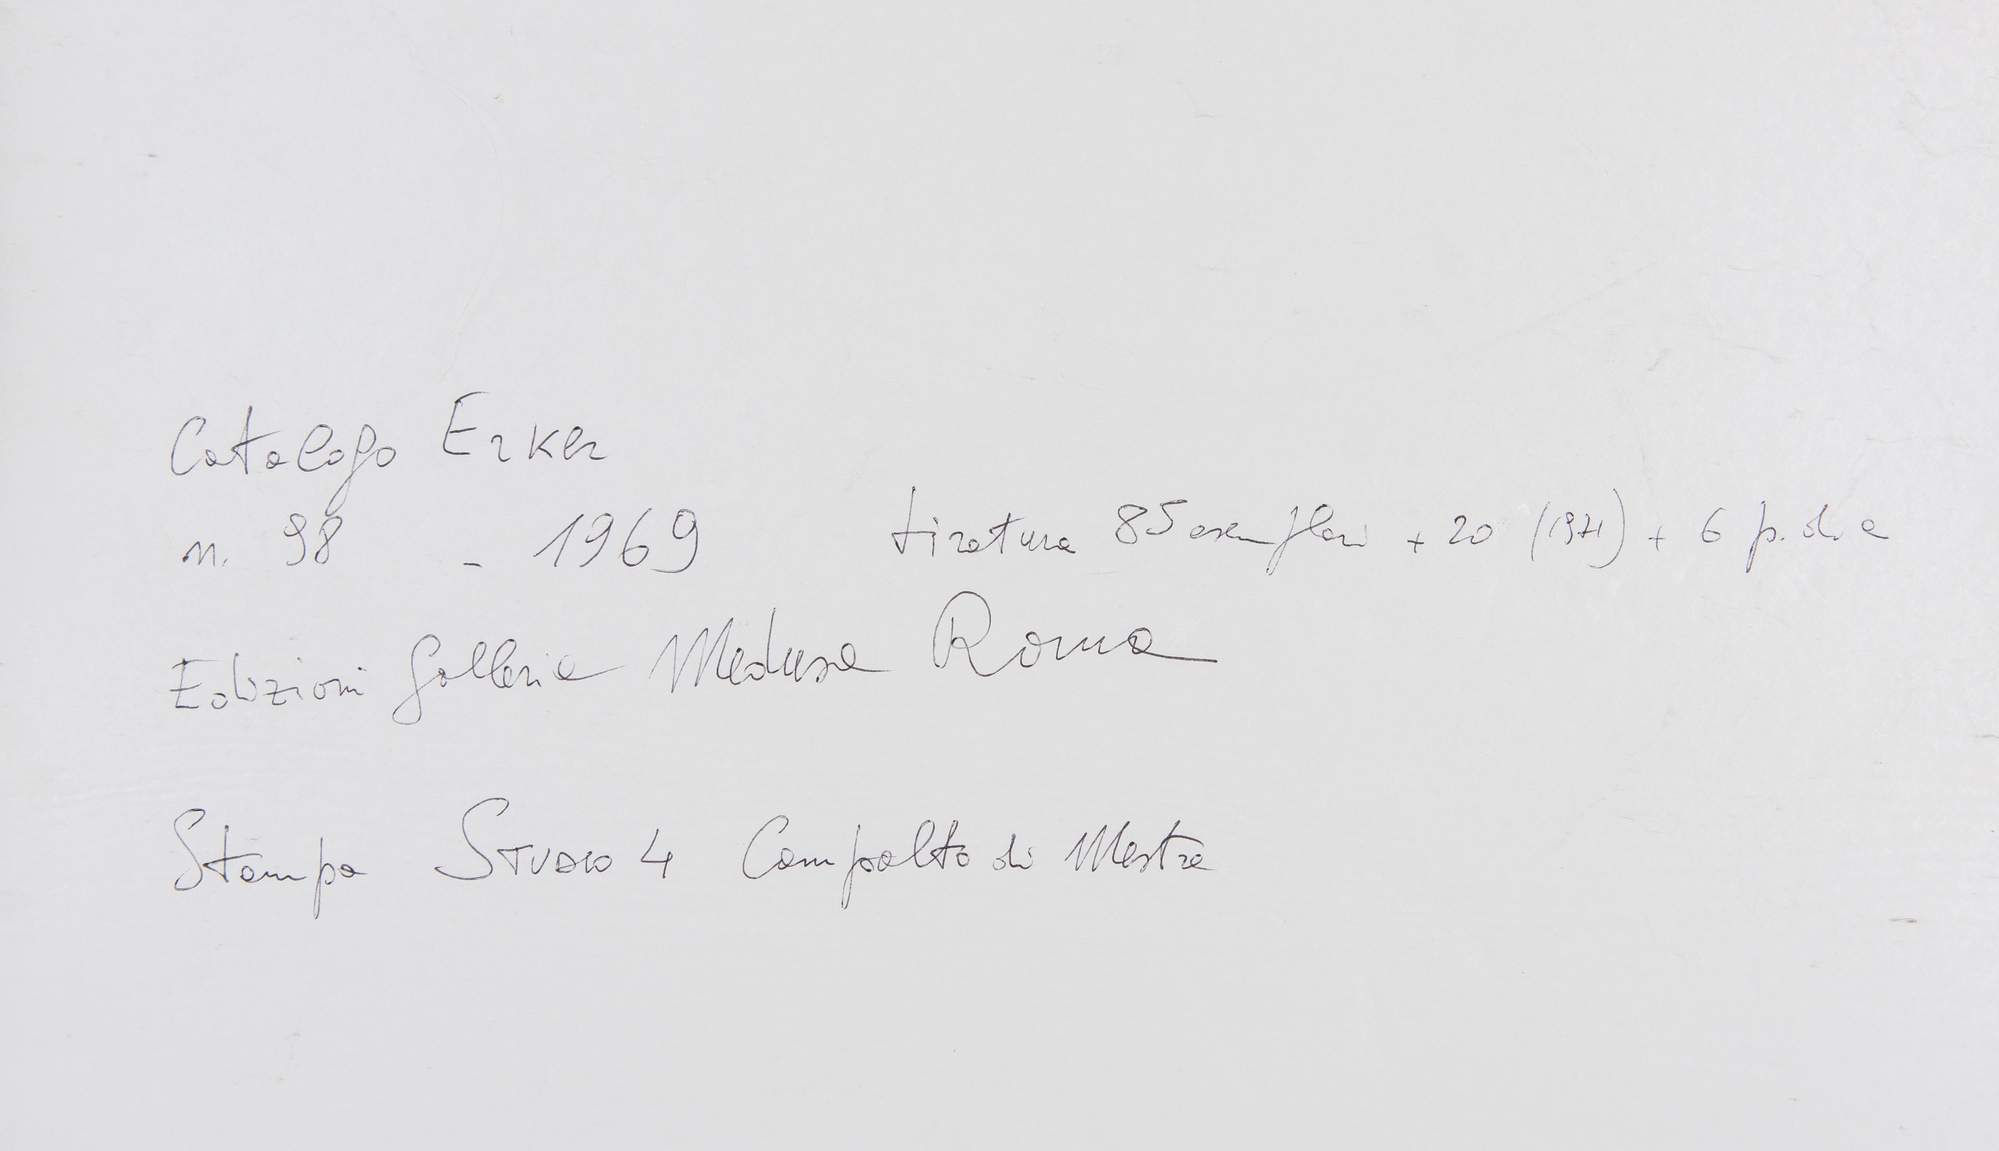 Catalogo Erker
n. 98 - 1969 tiratura 85 esemplari + 20 (1971) + 6 p. d. a
Edizioni Galleria Medusa Roma
Stampa Studio 4 Campalto di Mestre